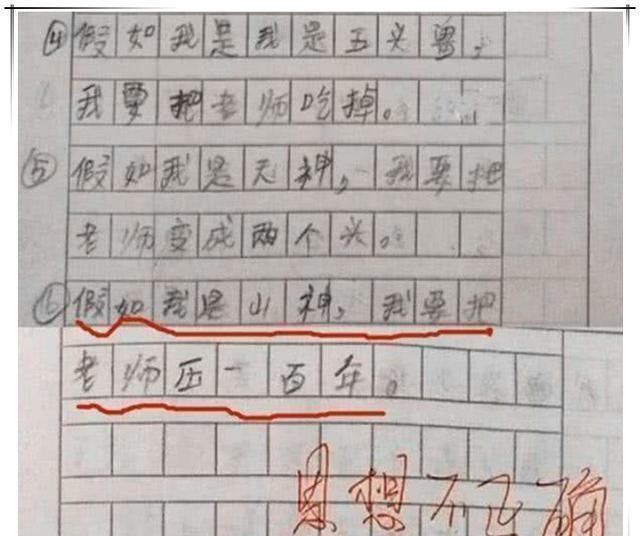 ④假如我是我是五头兽，
我要把老师吃掉。
⑤假如我是天神，我要把
老师变成两个头。
⑥假如我是山神，我要把
老师压一百年。
思想不正确